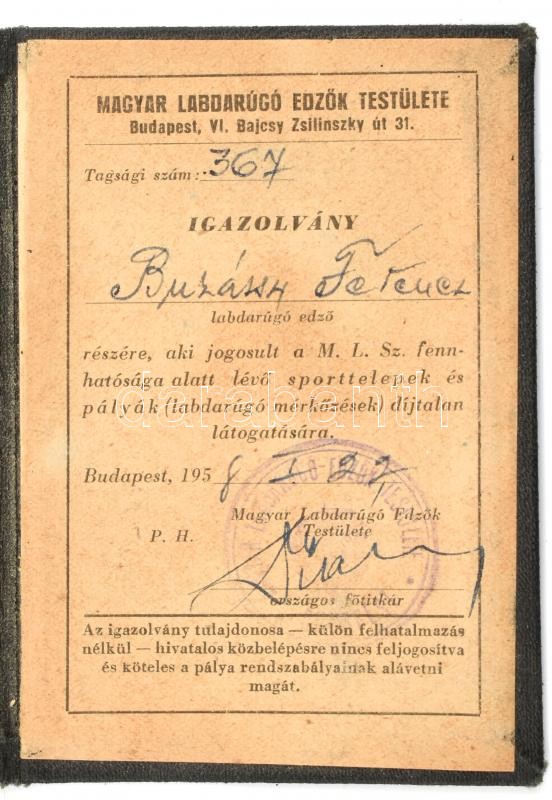 MAGYAR LABDARÚGÓ EDZŐK TESTÜLETE
Budapest, VI. Bajcsy Zsilinszky út 31.
Tagsági szám: 367
IGAZOLVÁNY
Buzássy Ferenc
labdarúgó edző
részére, aki jogosult a M. L. Sz. fenn-
hatósága alatt lévő sporttelepek és
pályák (labdarúgó mérkőzések) díjtalan
látogatására.
darabanth
Budapest, 1958 I 27
Magyar Labdarúgó Edzők
P. H. Testülete
országos főtitkár
Az igazolvány tulajdonosa — külön felhatalmazás
nélkül — hivatalos közbelépésre nincs feljogosítva
és köteles a pálya rendszabályainak alávetni
magát.